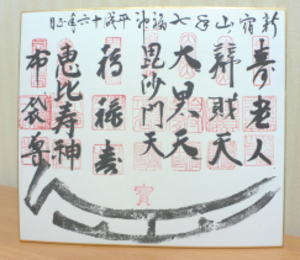 新宿山ノ手七福神平成十六年正月
寿老人
辨財天
大黒天
毘沙門天
福禄寿
恵比寿神
布袋尊
寳